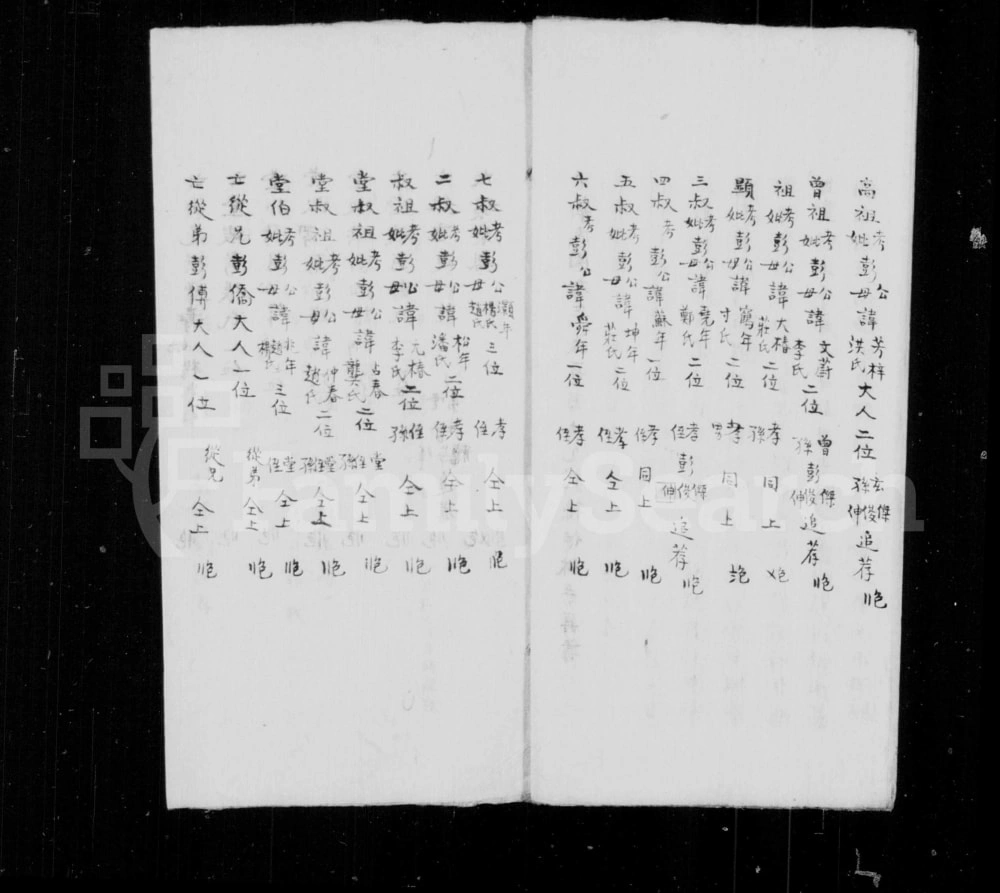 高祖考妣彭公母諱芳梓洪氏大人二位 玄孫傑俊伸追荐 〢包
曾祖考妣彭公母諱文蔚李氏二位 曾孫彭傑俊伸追荐 〢包
祖考妣彭公母諱大椿莊氏二位 孝孫同上 〤包
顯考妣彭公母諱寯年寸氏二位 孝男同上 包
三叔考妣彭公母諱堯年鄭氏二位 孝侄彭傑俊伸追荐 〢包
四叔考彭公諱蘇年一位 孝侄同上 〢包
五叔考妣彭公母諱坤年莊氏二位 孝侄仝上 〢包
六叔考彭公諱舜年一位 孝侄仝上 〢包
七叔考妣彭公母灝年楊氏趙氏三位 孝侄仝上 〢包
二叔考妣彭公母諱松年潘氏二位 孝侄仝上 〢包
叔祖考妣彭公母諱元椿李氏二位 侄孫仝上 〢包
堂叔考妣彭公母諱占春龔氏二位 堂侄孫仝上 〢包
堂叔祖考妣彭公母諱仲春趙氏二位 堂侄孫仝上 〢包
堂伯考妣彭公母諱兆年趙氏楊氏三位 堂侄仝上 〢包
亡從兄彭僑大人一位 從弟仝上 〢包
亡從弟彭傅大人一位 從兄仝上 〢包
FamilySearch